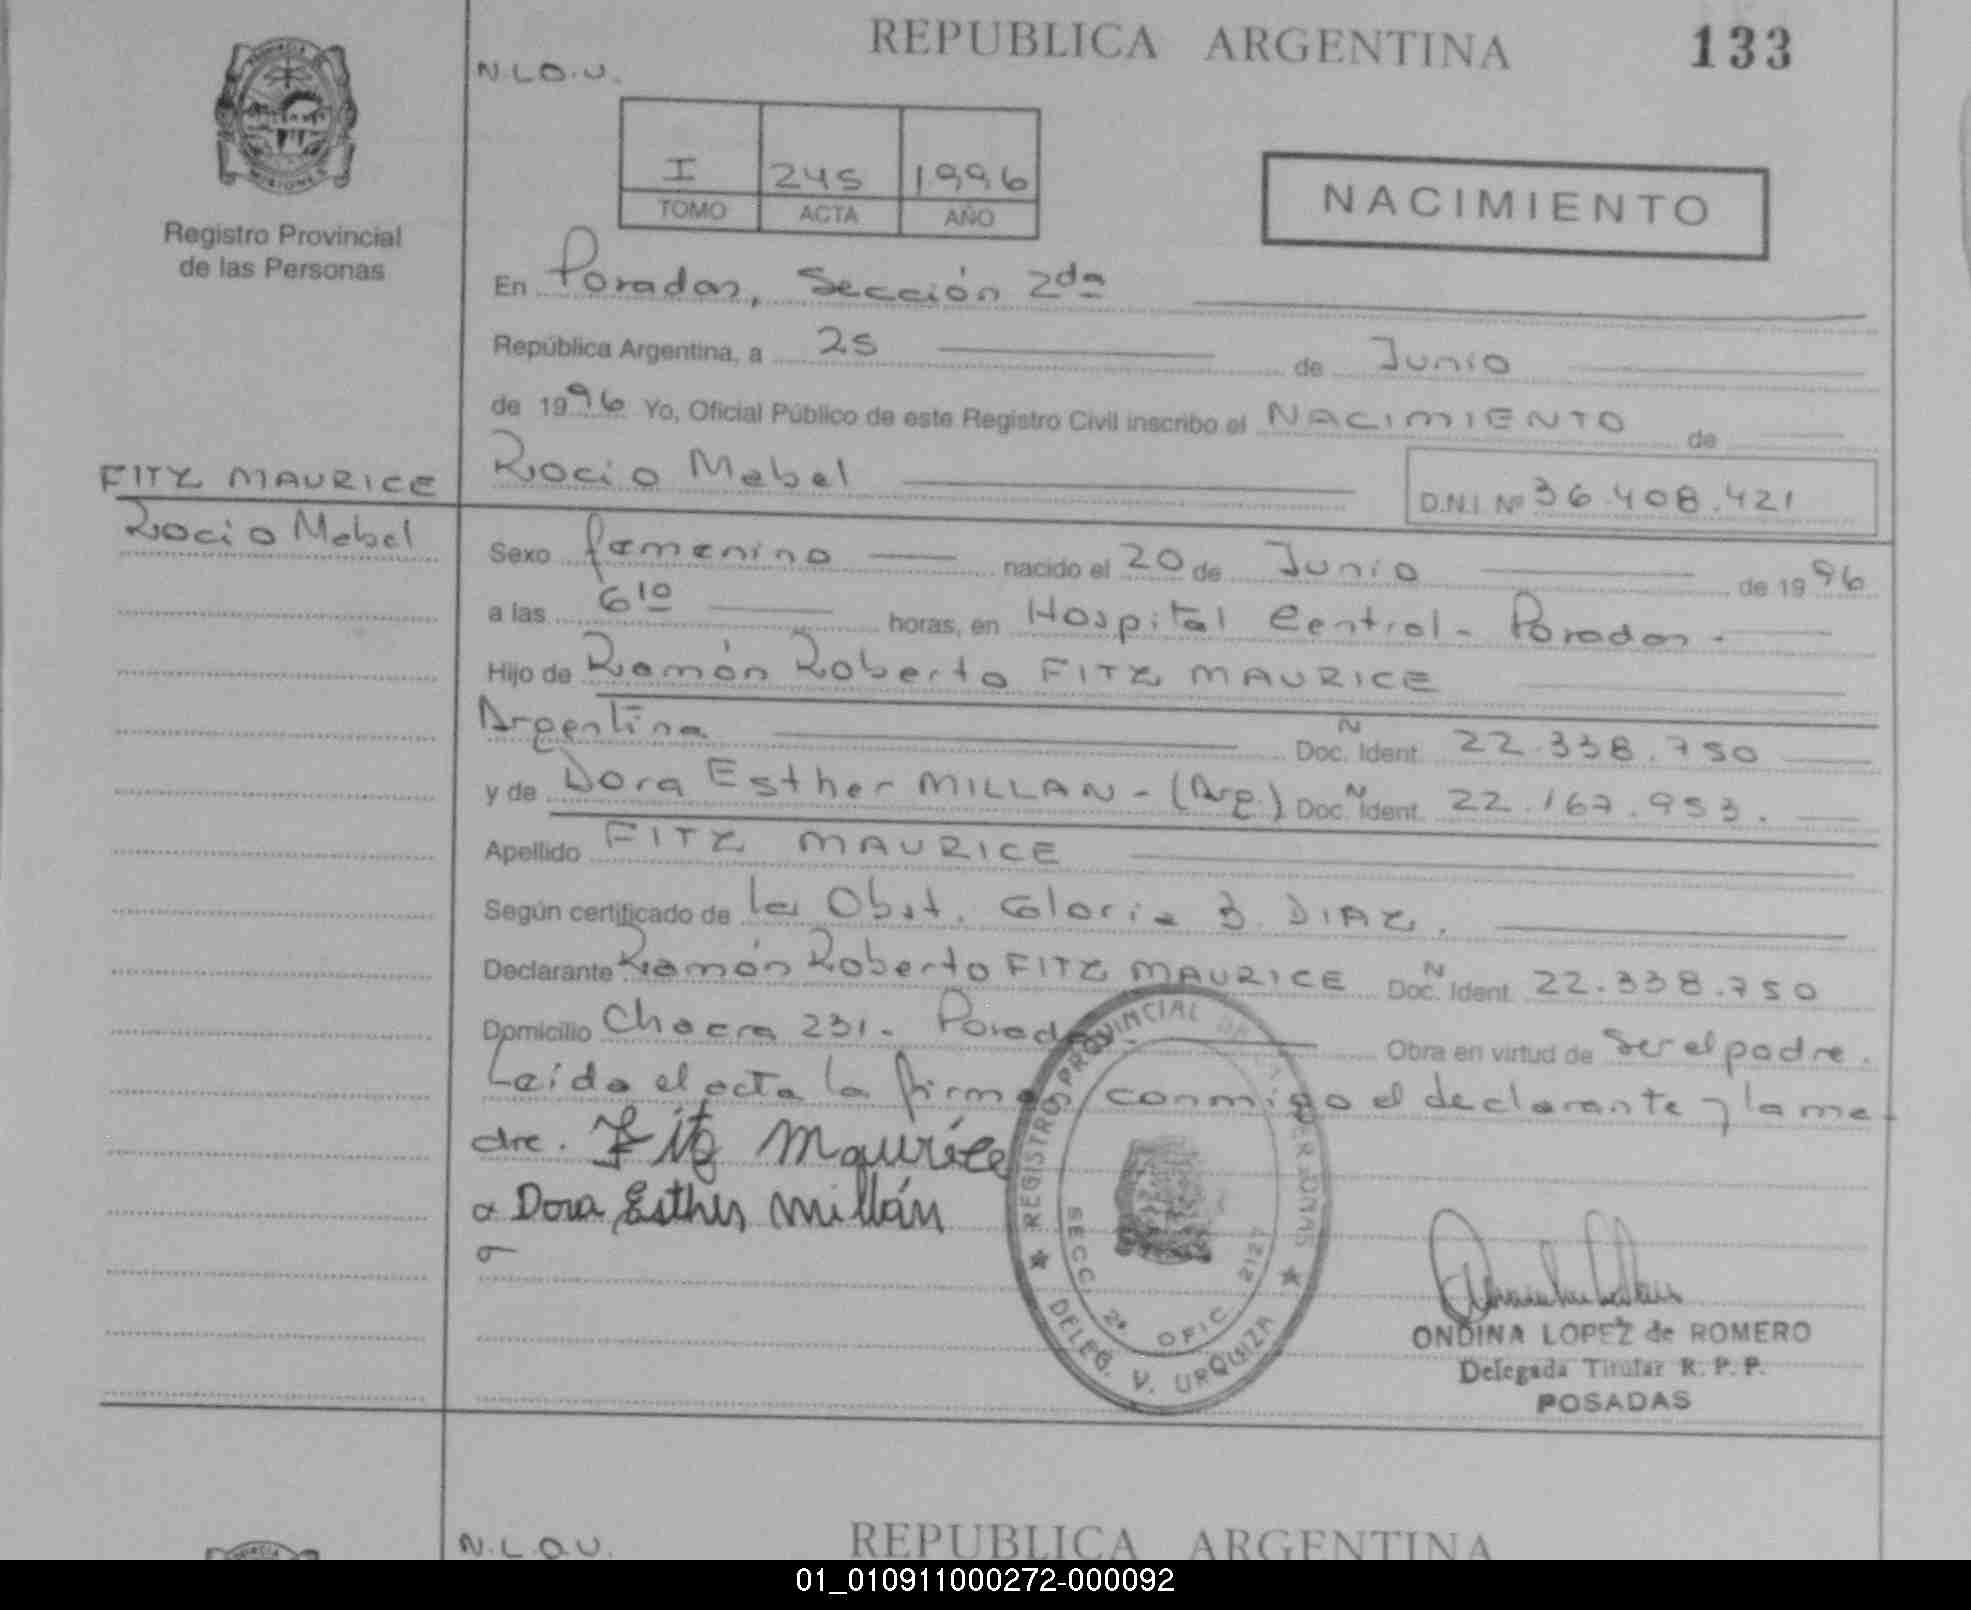 REPUBLICA ARGENTINA 133
N.L.O.U.
PROVINCIA
MISIONES
Registro Provincial
de las Personas
I 245 1996
TOMO ACTA AÑO
NACIMIENTO
En Posadas, Sección 2da
República Argentina, a 25 de Junio
de 1996 Yo, Oficial Público de este Registro Civil inscribo el NACIMIENTO de
Rocio Mabel
D.N.I. Nº 36.408.421
FITZ MAURICE
Rocio Mabel
Sexo femenino nacido el 20 de Junio de 1996
a las 6 10 horas, en Hospital Central - Posadas -
Hijo de Ramón Roberto FITZ MAURICE
Argentina Doc. N Ident. 22.338.750
y de Dora Esther MILLAN - (Arg.) Doc. N Ident. 22.167.953.
Apellido FITZ MAURICE
Según certificado de la Obst. Gloria B. DIAZ.
Declarante Ramón Roberto FITZ MAURICE Doc. N Ident. 22.338.750
Domicilio Chacra 231 - Posadas Obra en virtud de Ser el padre.
Leída el acta la firma conmigo el declarante y la ma-
dre. Fitz Mauríce
Dora Esther Millán
REGISTRO PROVINCIAL DE LAS PERSONAS
SECC. 2ª OFIC. 2127
DELEG. V. URQUIZA
ONDINA LOPEZ de ROMERO
Delegada Titular R. P. P.
POSADAS
N.L.O.U.
REPUBLICA ARGENTINA
01_010911000272-000092